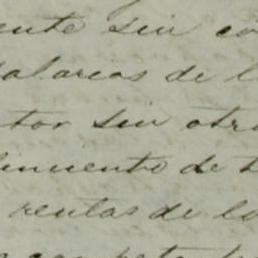 ente sin co
alarcas de l
tor sin otra
limiento de
rentas de lo